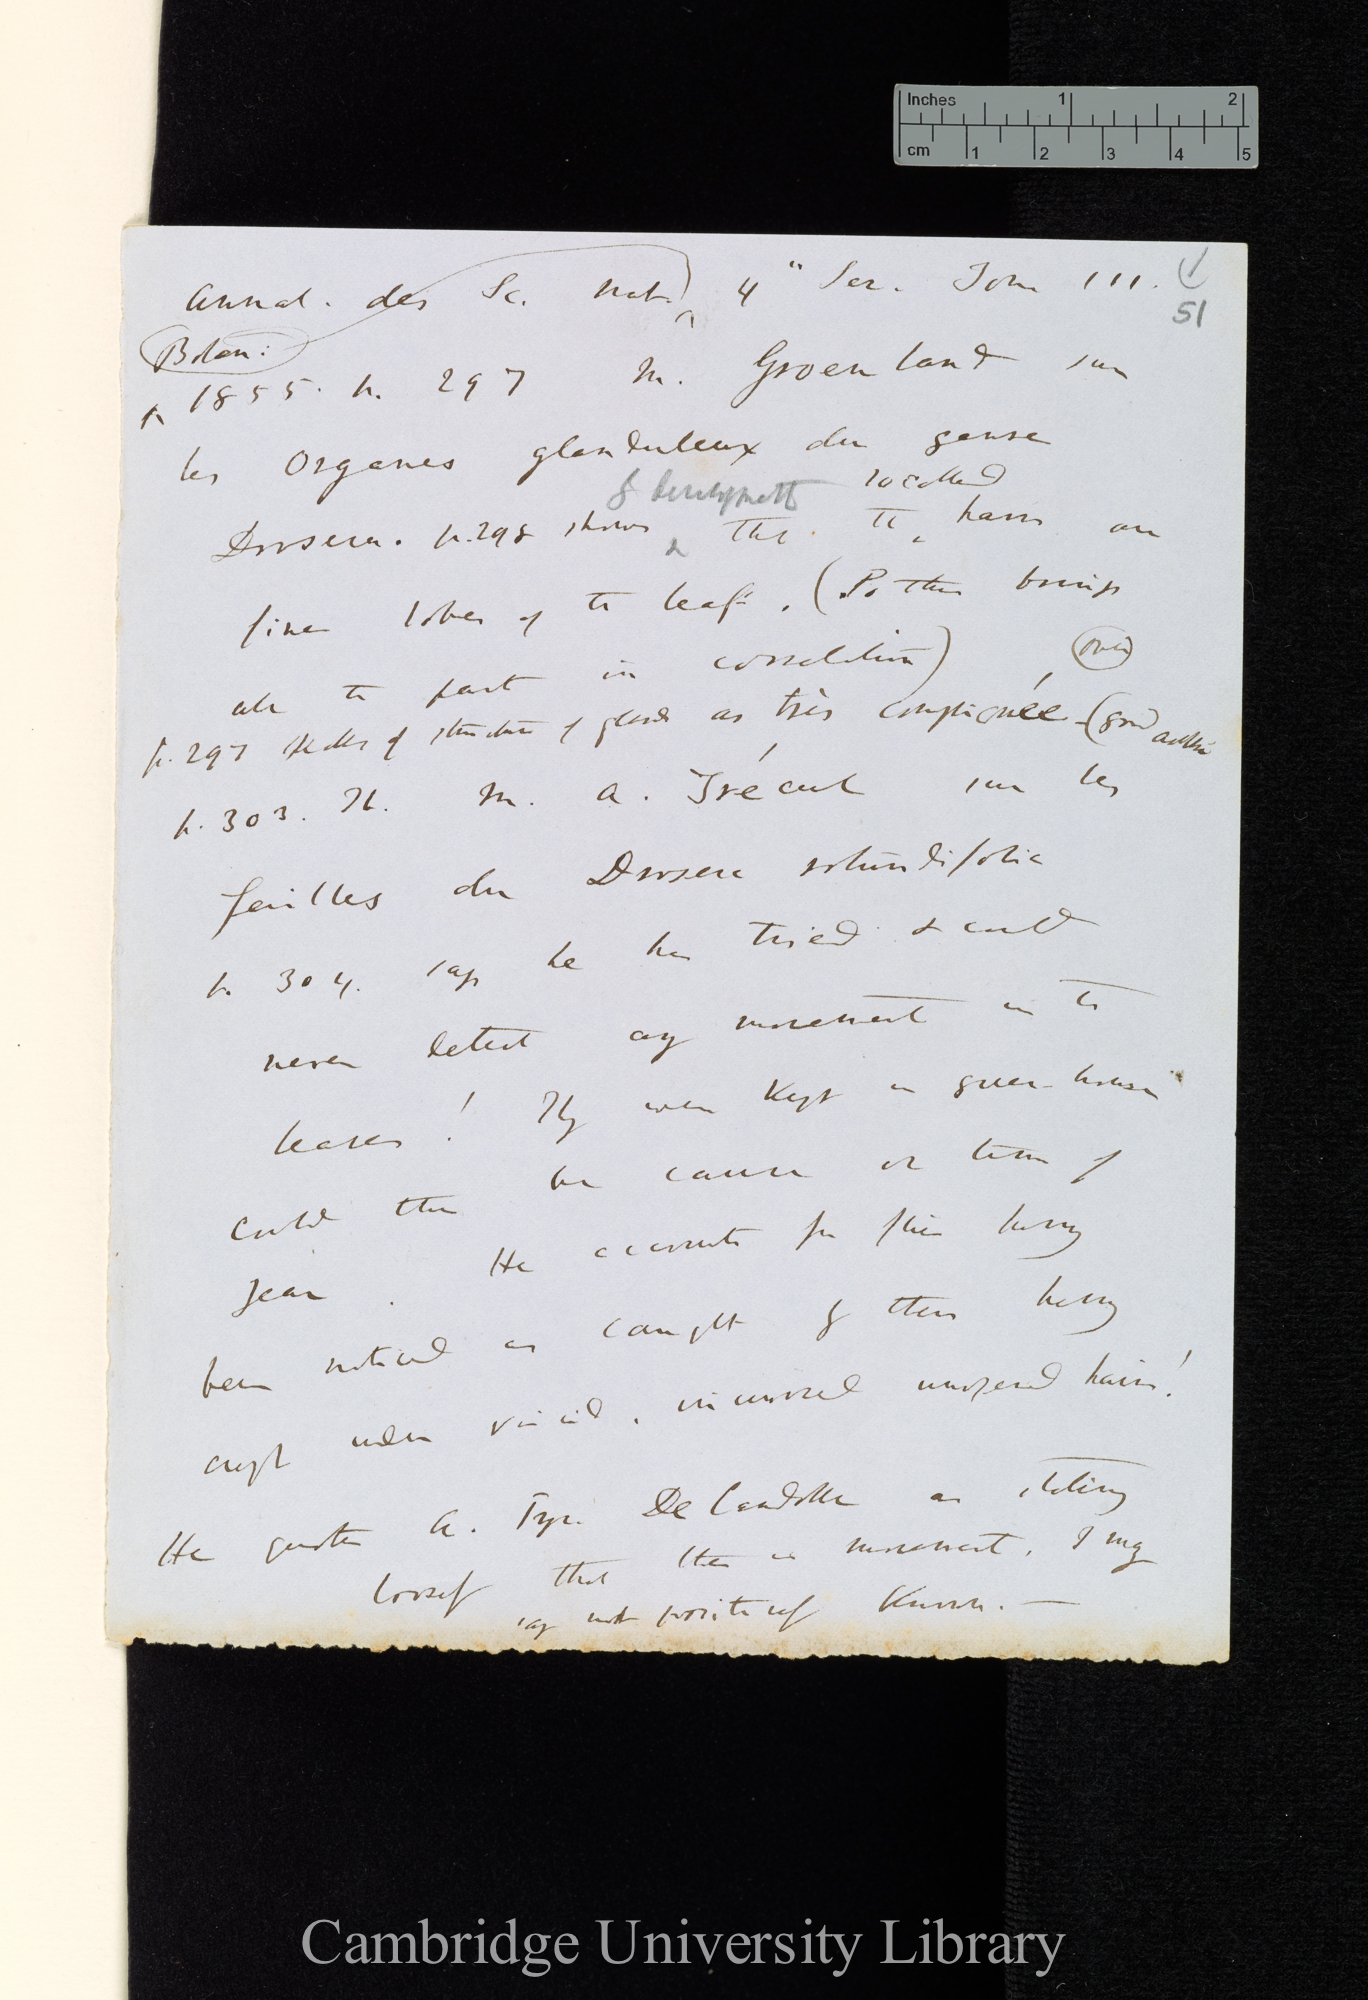 Inches 1 2
cm 1 2 3 4 5
51
Annal. des Sc. Nat. 4" Ser. Tom III.
Botan:
1855. p. 297 M. Groenland sur
les Organes glanduleux du genre
by development so called
Drosera. p. 298 shows that the hairs are
lobes of the leaf. (Po this brings
all the part in correlation) over
p. 297 speaks of structure of glands as très compliquée - (good
p. 303. Id. M. A. Trécul sur les
feuilles du Drosera rotundifolia
p. 304. says he has tried & could
never detect any movement in the
leaves! They were kept in green-house
could this be cause or time of
year. He accounts for flies having
been noticed as caught by their having
crept under viscid, incurved unopened hairs!
He quotes A. Pyr. De Candolle as stating
loosely that there is movement, I may
say not positively known. —
Cambridge University Library